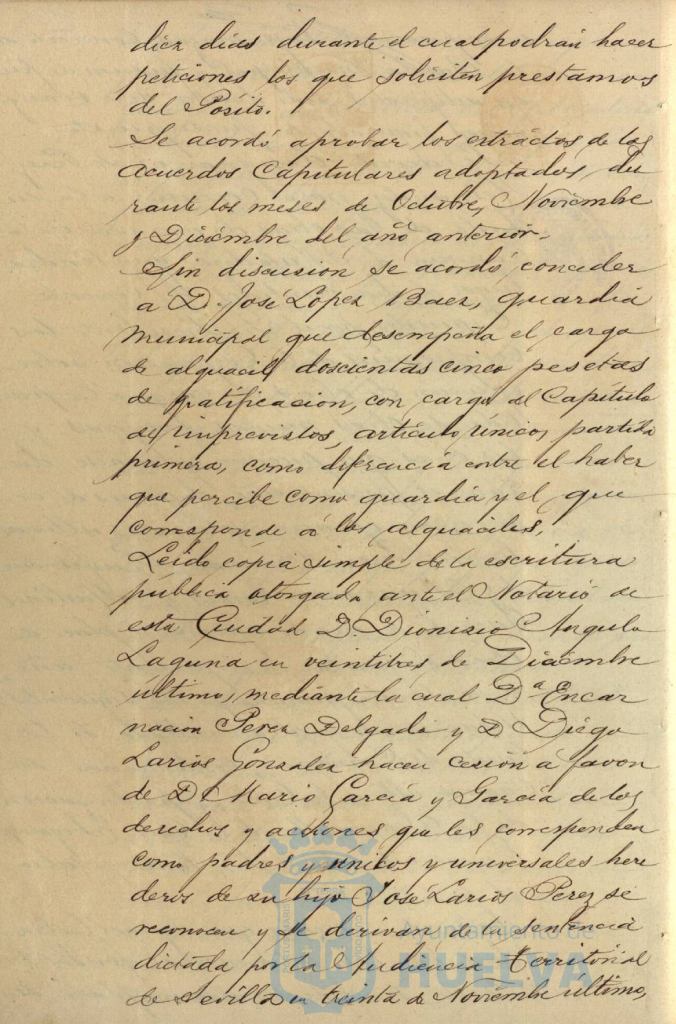 diez dias durante el cual podrán hacer
peticiones los que soliciten prestamos
del Posito.
Se acordó aprobar los extractos de los
acuerdos Capitulares adoptados, du
rante los meses de Octubre, Noviembre
y Diciembre del año anterior.
Sin discusión se acordó conceder
á D. José Lopez Baez, guardia
municipal que desempeña el cargo
de alguacil, doscientas cinco pesetas
de gratificacion, con cargo al Capítulo
de imprevistos, artículo único, partida
primera, como diferencia entre el haber
que percibe como guardia y el que
corresponde á los alguaciles.
Leido copia simple de la escritura
pública otorgada ante el Notario de
esta Ciudad D. Dionisio Angulo
Laguna en veintitres de Diciembre
último, mediante la cual Dª Encar
nacion Perez Delgado y D Diego
Larios Gonzalez hacen cesión á favor
de D. Mario García y García de los
derechos y acciones que les corresponden
como padres y únicos y universales here
deros de su hijo José Larios Perez se
reconocen y se derivan de la sentencia
dictada por la Audiencia Territorial
de Sevilla en treinta de Noviembre último,
Ayuntamiento de
HUELVA